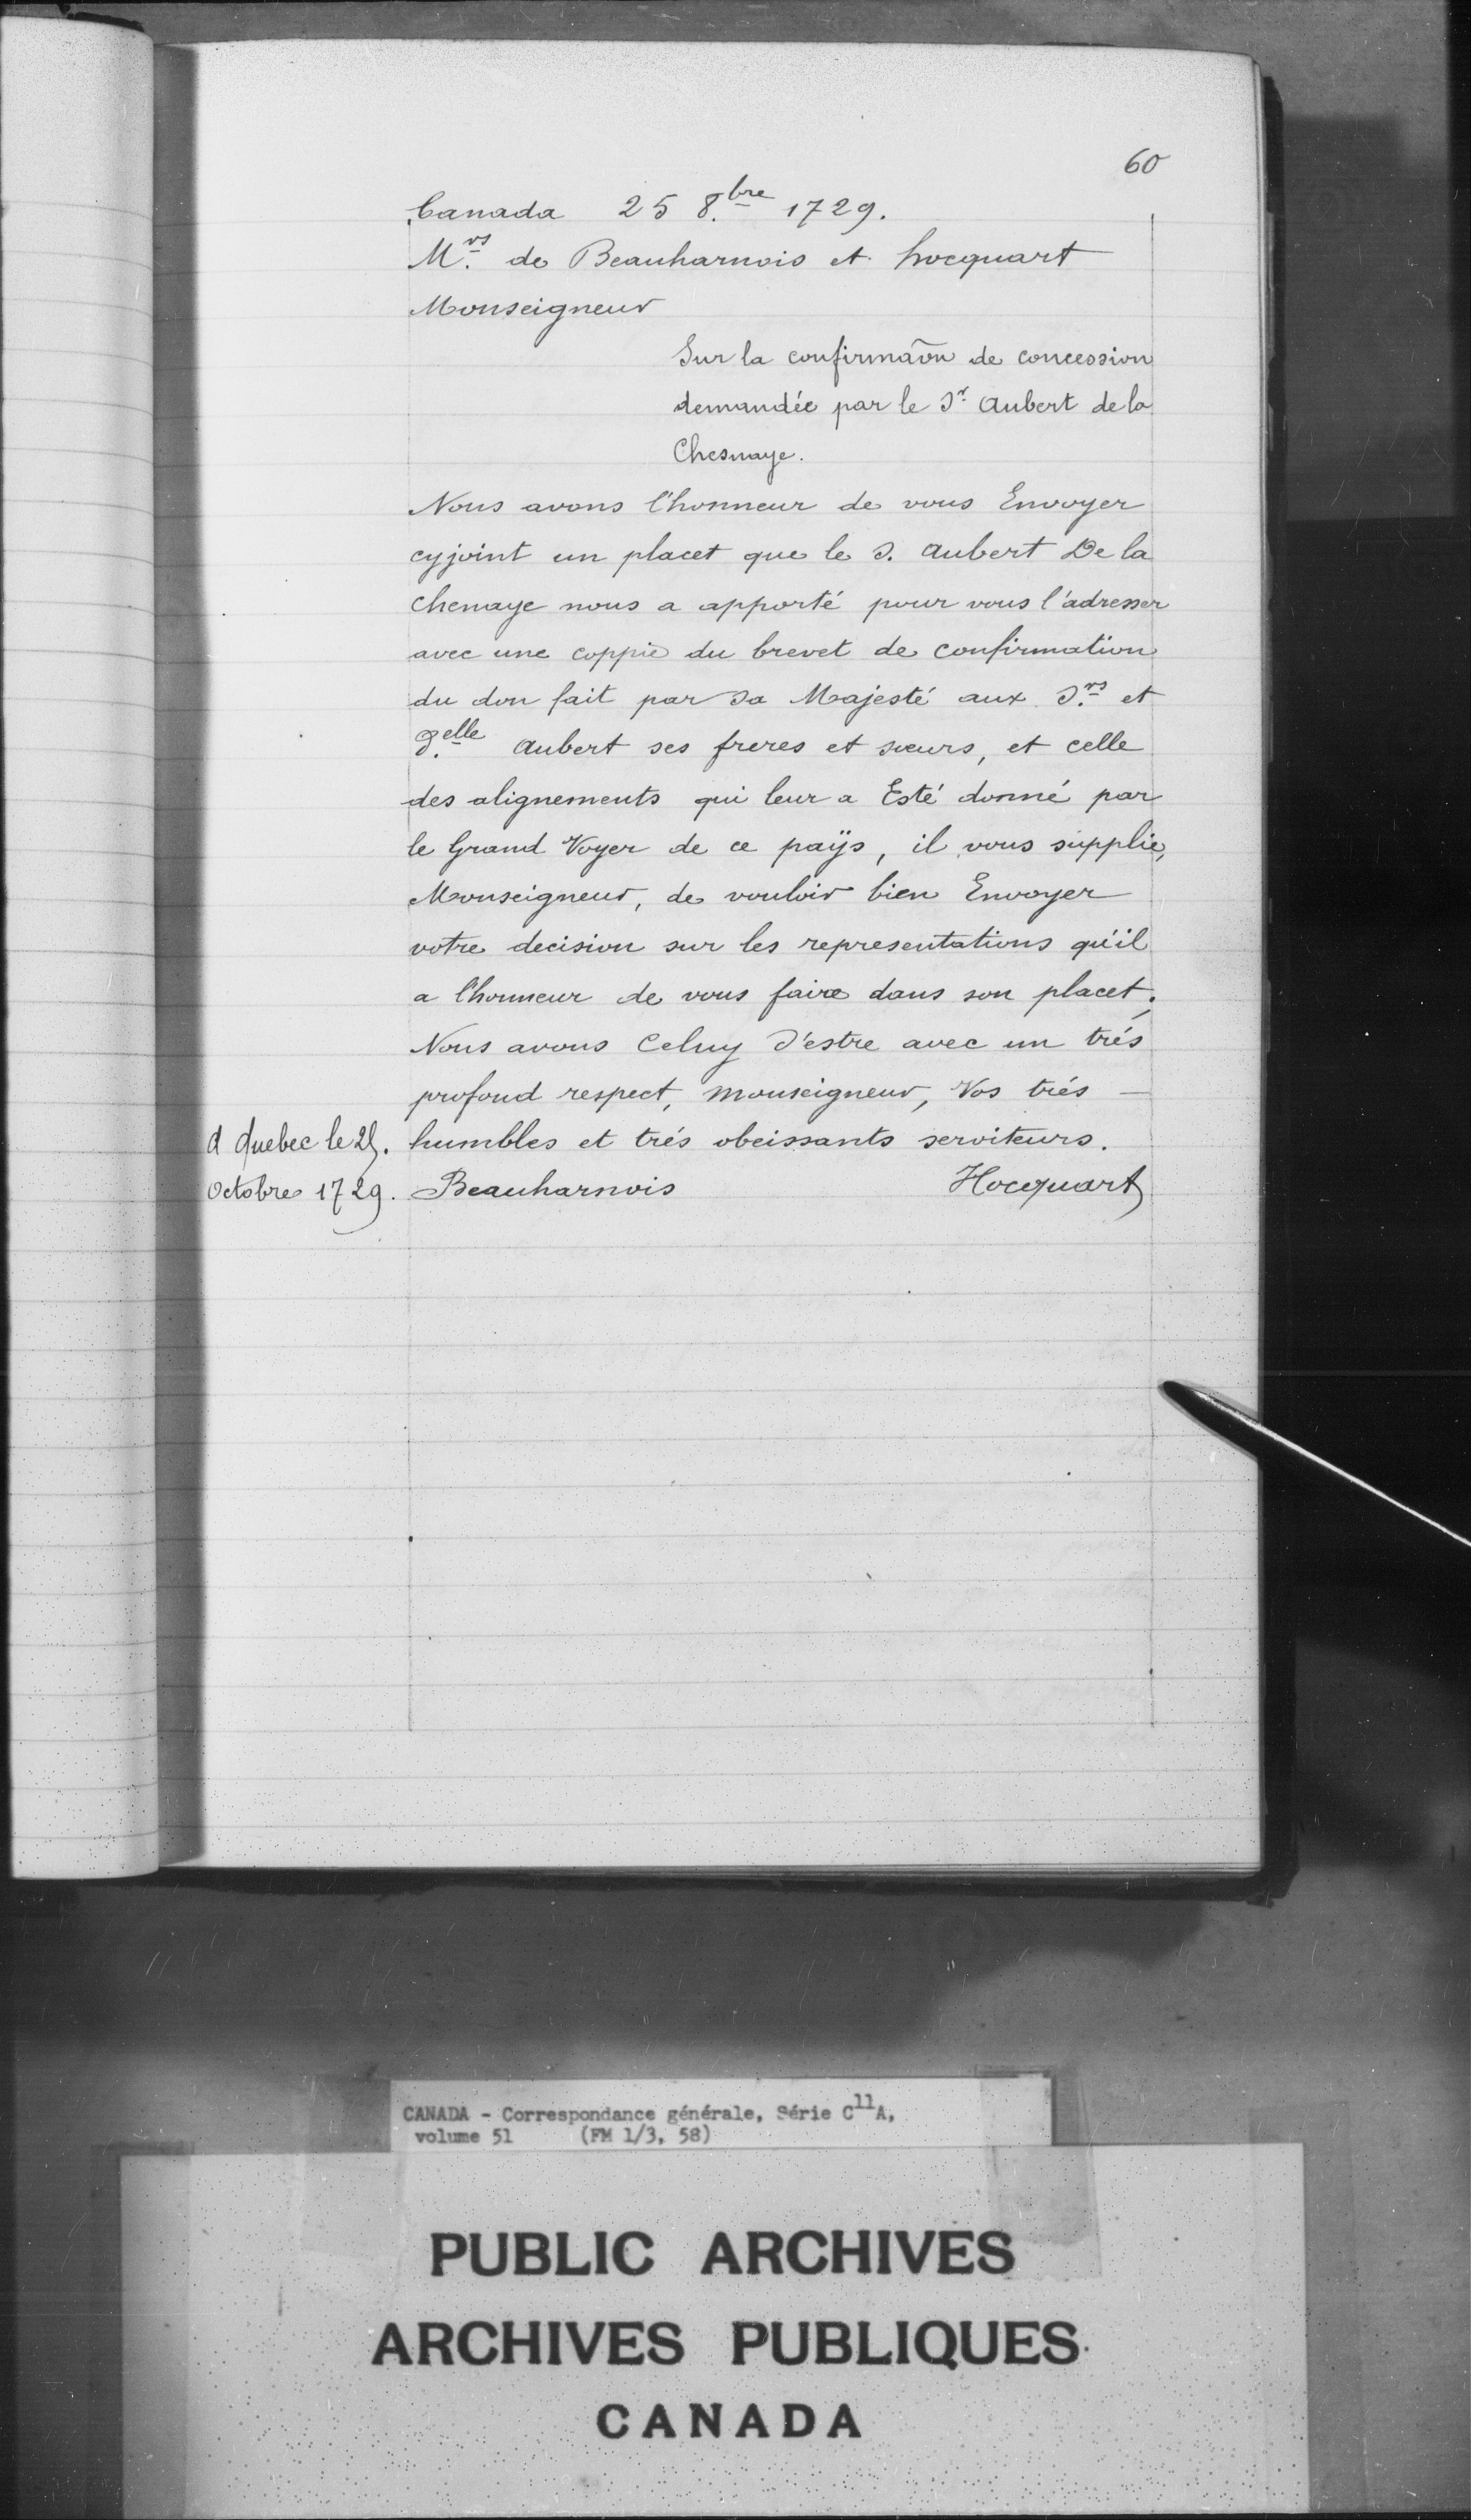 60
Canada 25 8.bre 1729.
M.rs de Beauharnois et hocquart
Monseigneur
Sur la confirmaõn de concession
demandée par le Sr Aubert de la
Chesnaye.
Nous avons l'honneur de vous Envoyer
cyjoint un placet que le S. Aubert De la
chenaye nous a apporté pour vous l'adresser
avec une coppie du brevet de confirmation
du don fait par Sa Majesté aux S.rs et
D.elle Aubert ses freres et sœurs, et celle
des alignements qui leur a Esté donné par
le Grand Voyer de ce païs, il vous supplie,
Monseigneur, de vouloir bien Envoyer
votre decision sur les representations qu'il
a l'honneur de vous faire dans son placet.
Nous avons Celuy d'estre avec un trés
profond respect, Monseigneur, Vos trés —
humbles et trés obeissants serviteurs.
A Quebec le 25.
Octobre 1729.
Beauharnois Hocquart
CANADA - Correspondance générale, Série C11A,
volume 51 (FM 1/3, 58)
PUBLIC ARCHIVES
ARCHIVES PUBLIQUES
CANADA